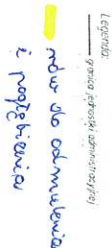 Legenda:
granica jednostki administracyjnej
rów do odmulenia
i pogłębienia